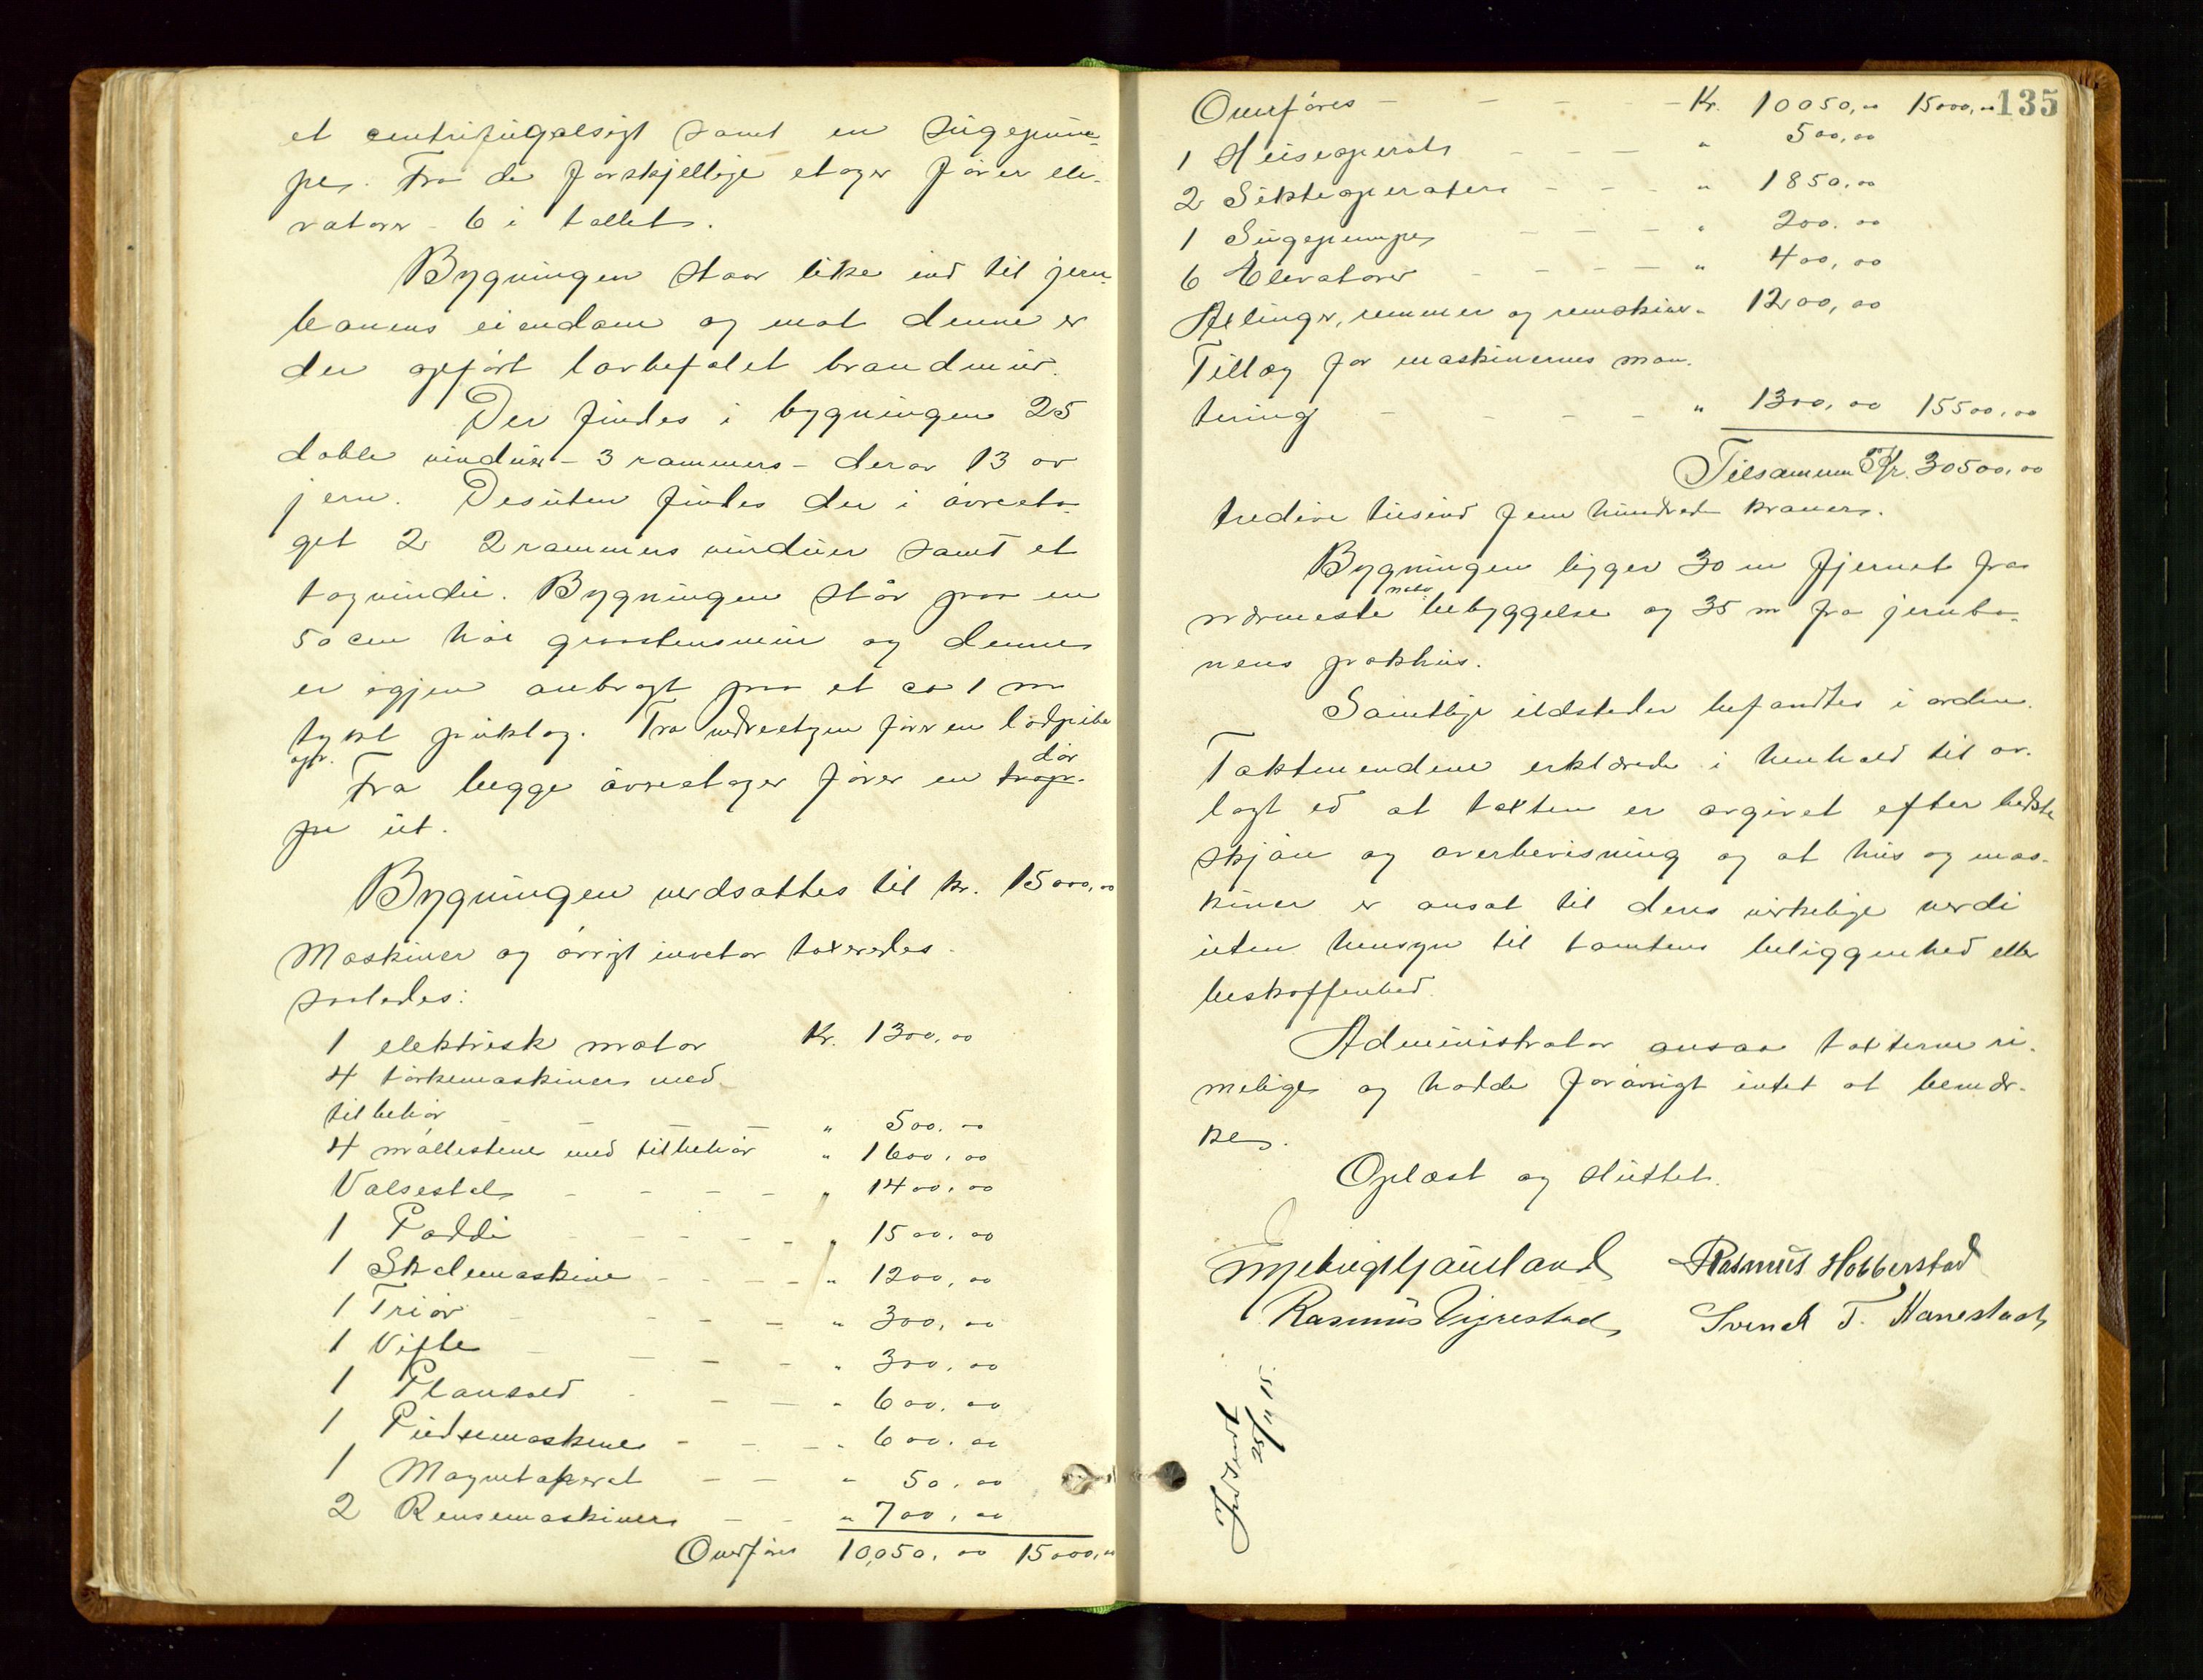 et centrifugalsigt samt en sugepum-
pe. Fra de forskjellige etager fører ele-
vatorer 6 i tallet.
Bygningen staar like ind til jern-
banens eiendom og mot denne er
der opført lovbefalet brandmur.
Der findes i bygningen 25
doble vinduer - 3 rammers - derav 13 av
jern. Desuten findes der i øvreeta-
get 2 2 rammers vinduer samt et
tagvindu. Bygningen står paa en
50 cm høi graastensmur og denne
er igjen anbragt paa et ca 1 m
tykt puklag. Fra nedreetagen fører en lødpibe
op.
Fra begge øvreetager fører en trap- dør
pe ut.
Bygningen verdsattes til kr. 15000,00
Maskiner og øvrigt invetar taxeredes
saaledes:
1 elektrisk motor Kr. 1300,00
4 tørkemaskiner med
tilbehør " 500.00
4 møllestene med tilbehør " 1600,00
Valsestol " 1400,00
1 Paddi " 1500,00
1 Skalemaskine " 1200,00
1 Triør " 300,00
1 Vifte " 300,00
1 Plansold " 600,00
1 Pudsemaskine " 600.00
1 Magnetaperat " 50,00
2 Rensemaskiner " 700,00
Overføres 10,050,00 15000,00
135
Overføres Kr. 10050,00 15000,00
1 Heiseaperat " 500,00
2 Sikteaperater " 1850,00
1 Sugepumpe " 200.00
6 Elevatorer " 400,00
Axlinger, remmer og remskiver " 1200,00
Tillæg for maskinernes mon-
tering " 1300,00 15500,00
Tilsammen Kr. 30500,00
tredive tusind fem hundrede kroner.
Bygningen ligger 30 m fjernet fra
nærmeste nabo bebyggelse og 35 m fra jernba-
nens pakhus.
Samtlige ildsteder befandtes i orden.
Takstmendene erklærede i henhold til av-
lagt ed at taxten er avgivet efter bedste
skjøn og overbevisning og at hus og mas-
kiner er ansat til deres virkelige verdi
uten hensyn til tomtens beliggenhed eller
beskaffenhed.
Administrator ansaa taxterne ri-
melige og hadde forøvrigt intet at bemær-
ke.
Oplæst og sluttet.
Rasmus Hobberstad
Rasmus Vigrestad Svend T. Hanestad
Indsendt
25/11 15.